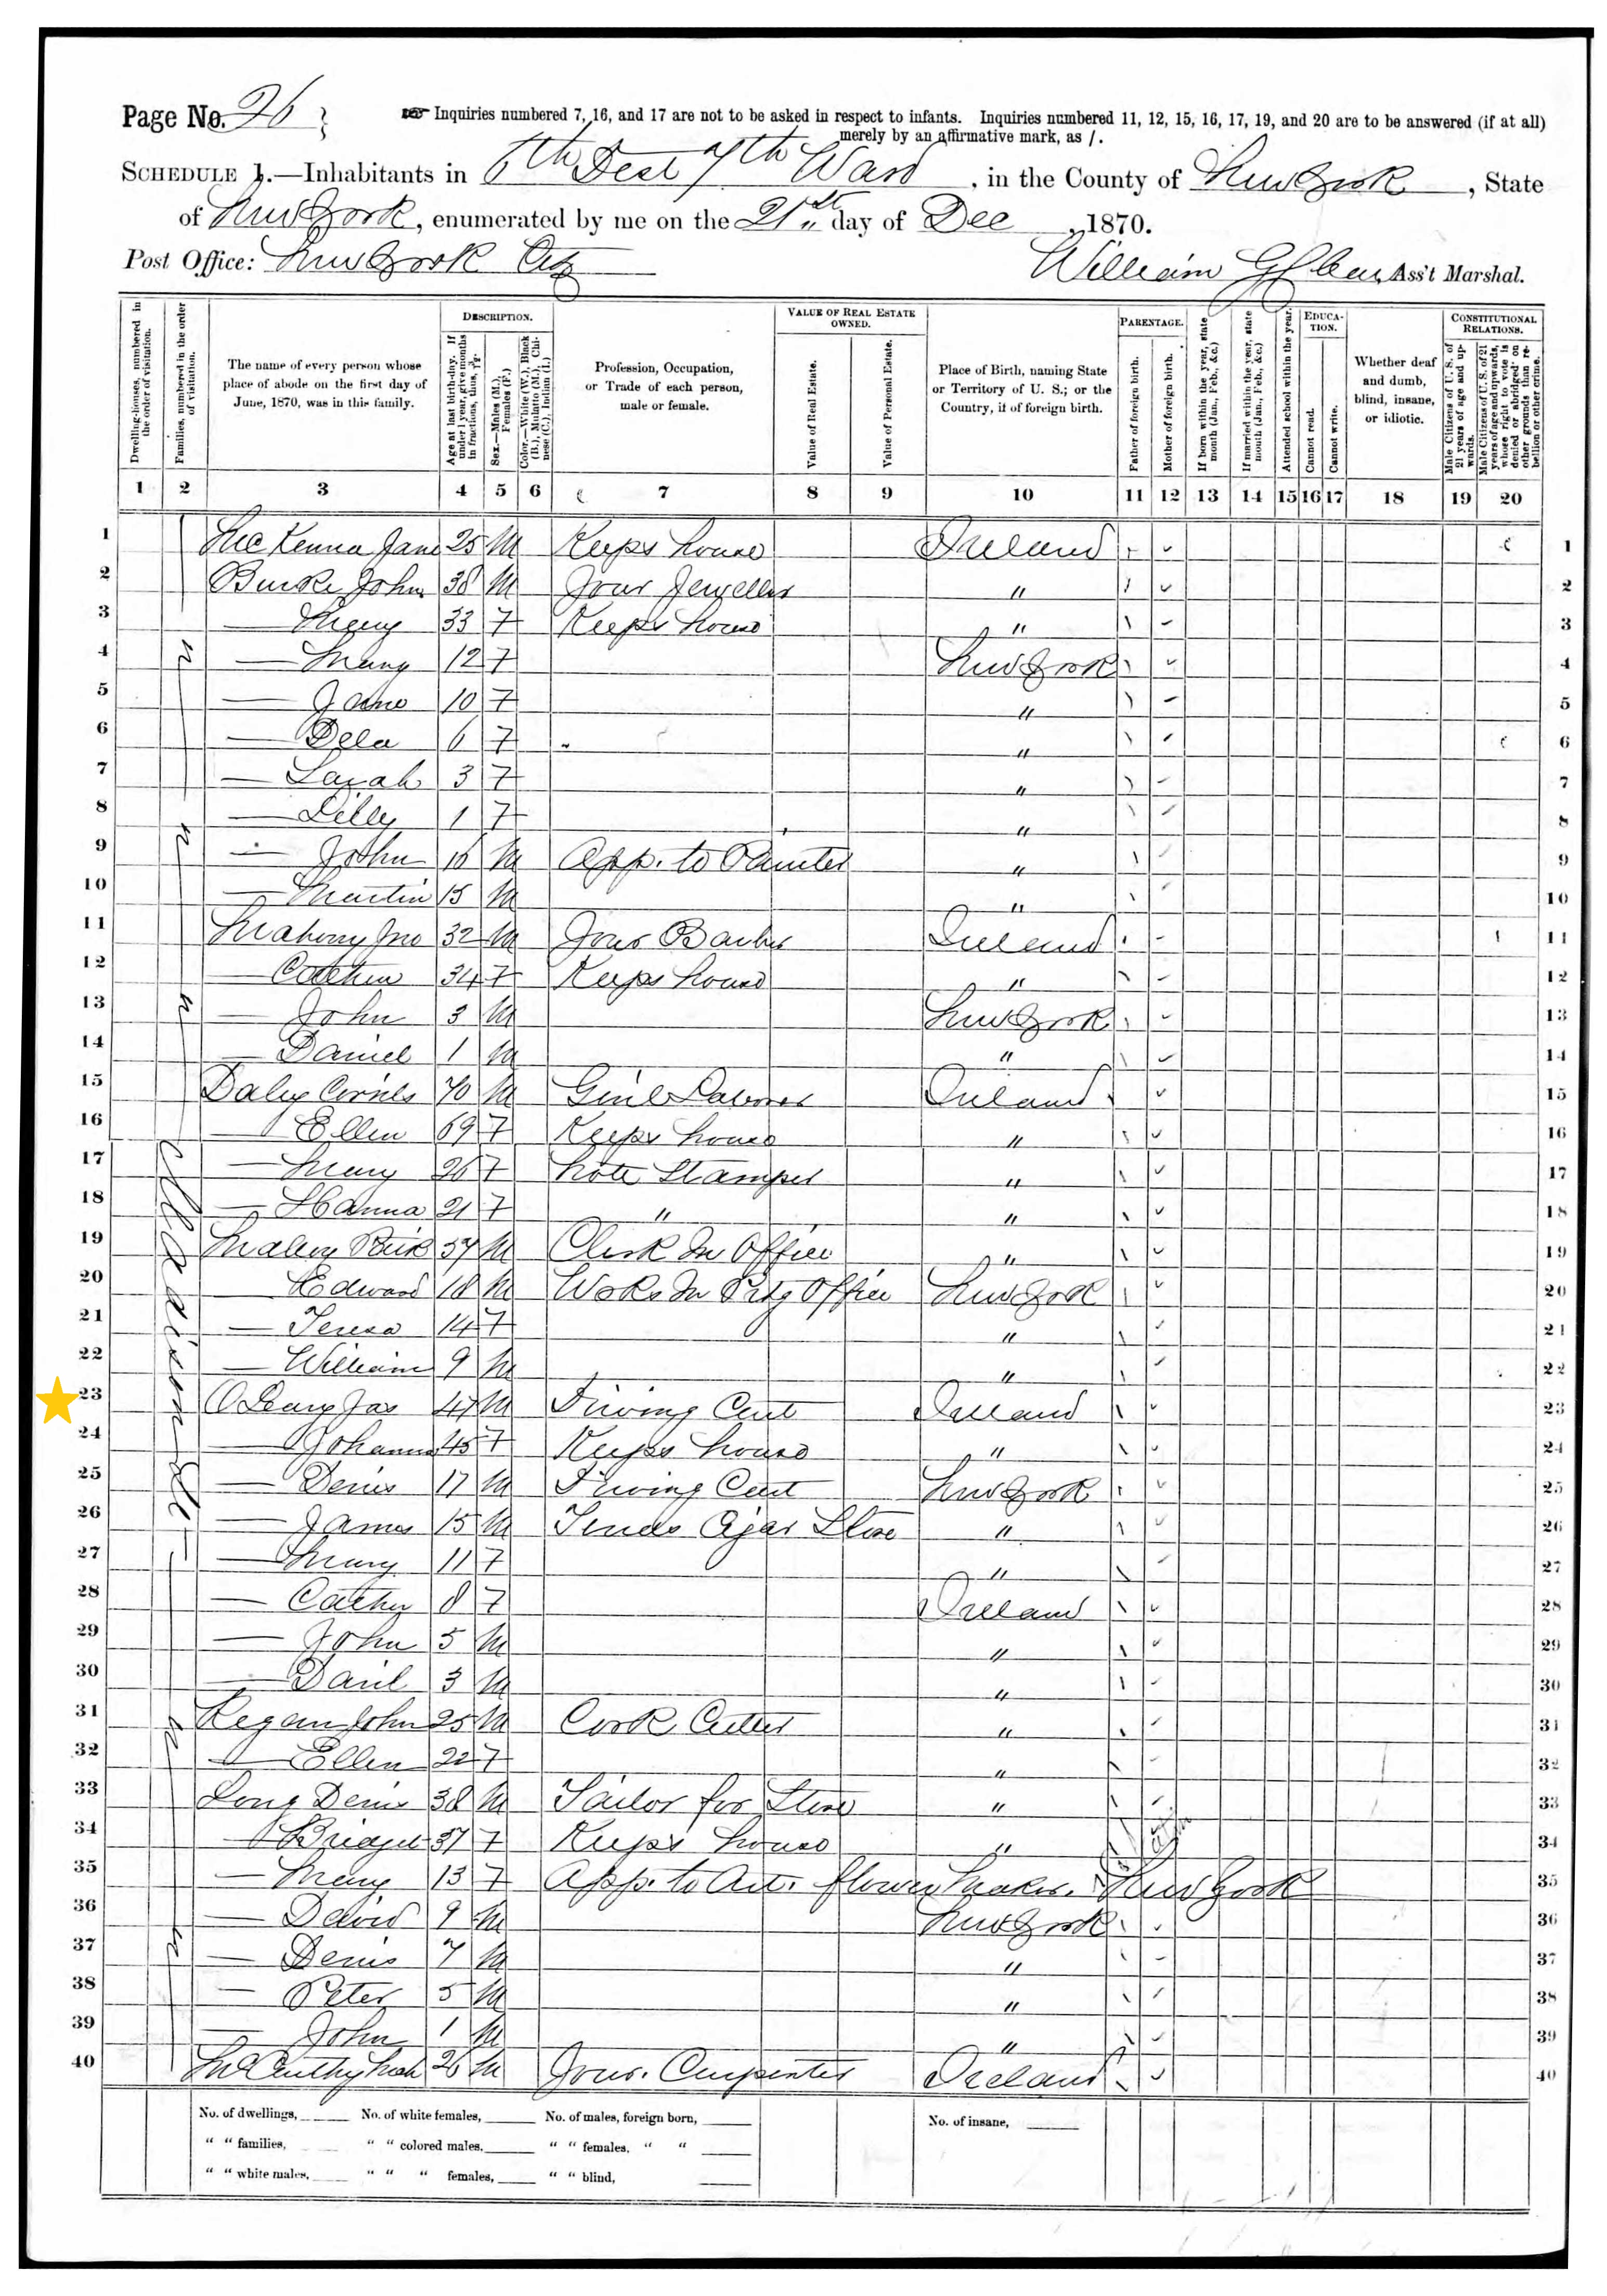 Page No. 26
Inquiries numbered 7, 16, and 17 are not to be asked in respect to infants. Inquiries numbered 11, 12, 15, 16, 17, 19, and 20 are to be answered (if at all)
merely by an affirmative mark, as /.
SCHEDULE 1.—Inhabitants in 6th Dist 7th Ward, in the County of New York, State
of New York, enumerated by me on the 21st day of Dec, 1870.
Post Office: New York City
William Ass't Marshal.
Dwelling-houses, numbered in the order of visitation.
Families, numbered in the order of visitation.
The name of every person whose place of abode on the first day of June, 1870, was in this family.
DESCRIPTION.
Age at last birth-day. If under 1 year, give months in fractions, thus,
Sex.—Males (M.), Females (F.)
Color.—White (W.), Black (B.), Mulatto (M.), Chinese (C.), Indian (I.)
Profession, Occupation, or Trade of each person, male or female.
VALUE OF REAL ESTATE OWNED.
Value of Real Estate.
Value of Personal Estate.
Place of Birth, naming State or Territory of U. S.; or the Country, if of foreign birth.
PARENTAGE.
Father of foreign birth.
Mother of foreign birth.
If born within the year, state month (Jan., Feb., &c.)
If married within the year, state month (Jan., Feb., &c.)
Attended school within the year.
EDUCATION.
Cannot read.
Cannot write.
Whether deaf and dumb, blind, insane, or idiotic.
CONSTITUTIONAL RELATIONS.
Male Citizens of U. S. of 21 years of age and upwards.
Male Citizens of U. S. of 21 years of age and upwards, whose right to vote is denied or abridged on other grounds than rebellion or other crime.
1 2 3 4 5 6 7 8 9 10 11 12 13 14 15 16 17 18 19 20
1 McKenna Jane 25 M Keeps house Ireland 1
2 Burke John 38 M Jour Jeweller " 2
3 — 33 F Keeps house " 3
4 — Mary 12 F New York 4
5 — Jane 10 F " 5
6 — Dela 6 F " 6
7 — Sarah 3 F " 7
8 — Lilly 1 F " 8
9 — John 16 M App. to Painter " 9
10 — Martin 15 M " 10
11 Mahony Jno 32 M Jour Ireland 11
12 — 34 F Keeps house " 12
13 — John 3 M New York 13
14 — Daniel 1 M " 14
15 Daley Cornls 70 M Genl Laborer Ireland 15
16 — Ellen 69 F Keeps house " 16
17 — Mary 26 F Note Stamper " 17
18 — Hanna 21 F " " 18
19 37 M Clerk In Office " 19
20 Edward 18 M Works In Ptg Office New York 20
21 — Teresa 14 F " 21
22 — William 9 M " 22
23 O Leary Jas 47 M Driving Cart Ireland 23
24 — Johanna 45 F Keeps house " 24
25 — Denis 17 M Driving Cart New York 25
26 — James 15 M Tends Cigar Store " 26
27 — Mary 11 F " 27
28 — Cathy 8 F Ireland 28
29 — John 5 M " 29
30 — Danl 3 M " 30
31 Regan John 25 M Cork Cutter " 31
32 — Ellen 22 F " 32
33 Long Denis 38 M Tailor for Store " 33
34 — Bridget 37 F Keeps house " 34
35 — Mary 13 F App. to Art. flower Maker. New York 35
36 — David 9 M New York 36
37 — Denis 7 M " 37
38 — Peter 5 M " 38
39 — John 1 M " 39
40 McCarthy 26 M Jour. Carpenter Ireland 40
No. of dwellings, No. of white females, No. of males, foreign born, No. of insane,
" " families, " " colored males, " " females, " "
" " white males, " " " females, " " blind,